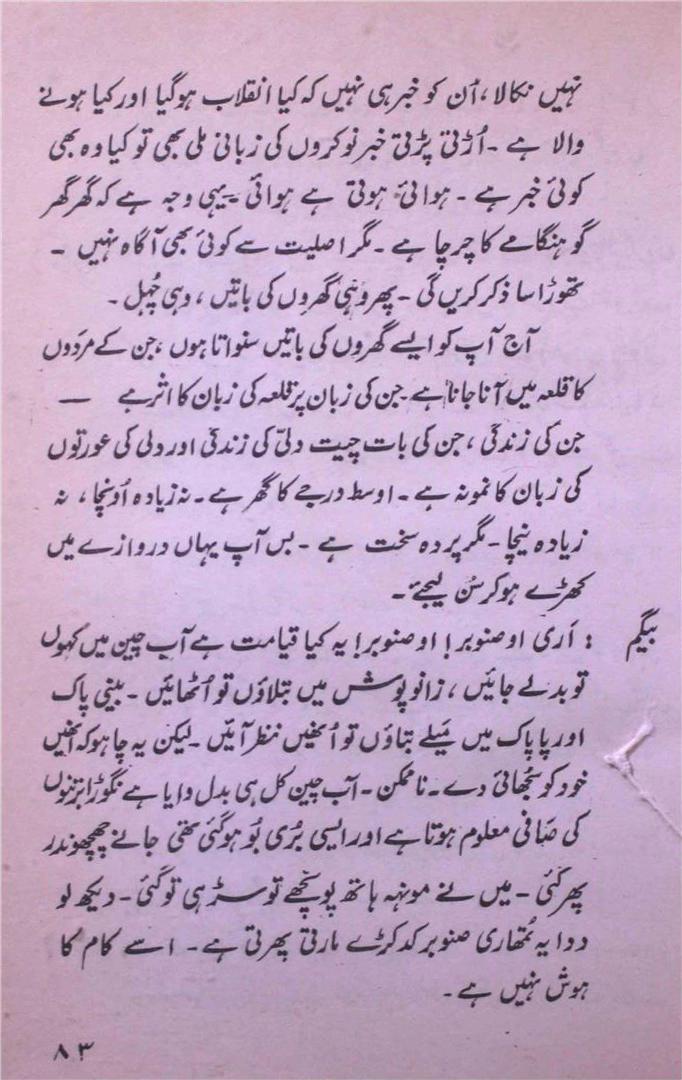 نہیں نکالا، اُن کو خبر ہی نہیں کہ کیا انقلاب ہوگیا اور کیا ہونے
والا ہے ۔ اُڑتی پڑتی خبر نوکروں کی زبانی ملی بھی تو کیا وہ بھی
کوئی خبر ہے ۔ ہوائی ہوتی ہے ہوائی ۔ یہی وجہ ہے کہ گھر گھر
گو ہنگامے کا چرچا ہے ۔ مگر اصلیت سے کوئی بھی آگاہ نہیں ۔
تھوڑا سا ذکر کریں گی ۔ پھر وہی گھروں کی باتیں ، وہی چُہل ۔
آج آپ کو ایسے گھروں کی باتیں سنواتا ہوں ، جن کے مردوں
کا قلعہ میں آنا جانا ہے ۔ جن کی زبان پر قلعہ کی زبان کا اثر ہے —
جن کی زندگی ، جن کی بات چیت دلّی کی زندگی اور دلی کی عورتوں
کی زبان کا نمونہ ہے ۔ اوسط درجے کا گھر ہے ۔ نہ زیادہ اُونچا ، نہ
زیادہ نیچا ۔ مگر پردہ سخت ہے ۔ بس آپ یہاں دروازے میں
کھڑے ہو کر سُن لیجئے ۔
بیگم : اَری او صنوبر! او صنوبر! یہ کیا قیامت ہے آپ چین میں کہوں
تو بدلے جائیں ، زانو پوش میں بتلاؤں تو اُٹھائیں ۔ بینی پاک
اور پاپاک میں مَیلے بتاؤں تو اُنھیں نظر آئیں ۔ لیکن یہ چاہو کہ اُنھیں
خود کو سُجھائی دے ۔ ناممکن ۔ آب چین کل ہی بدل وایا ہے نگوڑا برتنوں
کی صَافی معلوم ہوتا ہے اور ایسی بُری بُو ہوگئی تھی جانے چھچھوندر
پھر گئی ۔ میں نے مونہہ ہاتھ پونچھے تو سڑ ہی تو گئی ۔ دیکھ لو
ددا یہ تمُھاری صنوبر کدکڑے مارتی پھرتی ہے ۔ اسے کام کا
ہوش نہیں ہے ۔
۸۳